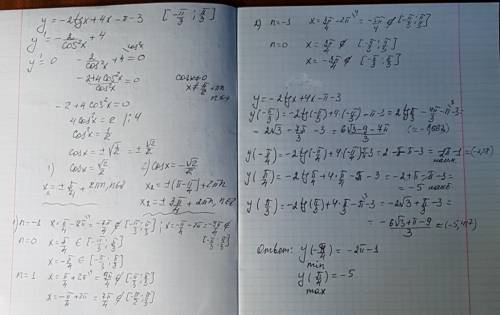 y = -2tgx + 4x - π - 3   [-π/3; π/3]
y' = -2/cos²x + 4
y' = 0   -2/cos²x + 4 = 0
(-2 + 4cos²x)/cos²x = 0
cosx ≠ 0
x ≠ π/2 + πn
n∈Z
-2 + 4cos²x = 0
4cos²x = 2 | :4
cos²x = 1/2
cosx = ±√(1/2) = ±√2/2
1) cosx = √2/2   2) cosx = -√2/2
x₁ = ±π/4 + 2πn, n∈Z   x₂ = ±(π - π/4) + 2πn
x₂ = ±3π/4 + 2πn, n∈Z
1) n=-1   x = π/4 - 2π = -7π/4 ∉ [-π/3; π/3]; x = -π/4 - 2π = -9π/4 ∉ [-π/3; π/3]
n=0   x = π/4 ∈ [-π/3; π/3]
x = -π/4 ∈ [-π/3; π/3]
n=1   x = π/4 + 2π = 9π/4 ∉ [-π/3; π/3]
x = -π/4 + 2π = 7π/4 ∉ [-π/3; π/3]
2) n=-1   x = 3π/4 - 2π = -5π/4 ∉ [-π/3; π/3]
n=0   x = 3π/4 ∉ [-π/3; π/3]
x = -3π/4 ∉ [-π/3; π/3]
y = -2tgx + 4x - π - 3
y(-π/3) = -2tg(-π/3) + 4·(-π/3) - π - 3 = 2tg π/3 - 4π/3 - π - 3 =
y(-π/4) = -2tg(-π/4) + 4·(-π/4) - π - 3
y(π/4) = -2tg π/4 + 4·π/4 - π - 3 = -2 + π - π - 3 =
= -5 наиб
y(π/3) = -2tg(π/3) + 4·π/3 - π - 3 = -2√3 + π/3 - 3 =
= (-6√3 + π - 9)/3
Ответ: y(-π/4) = -2π - 1
min
y(π/4) = -5
max